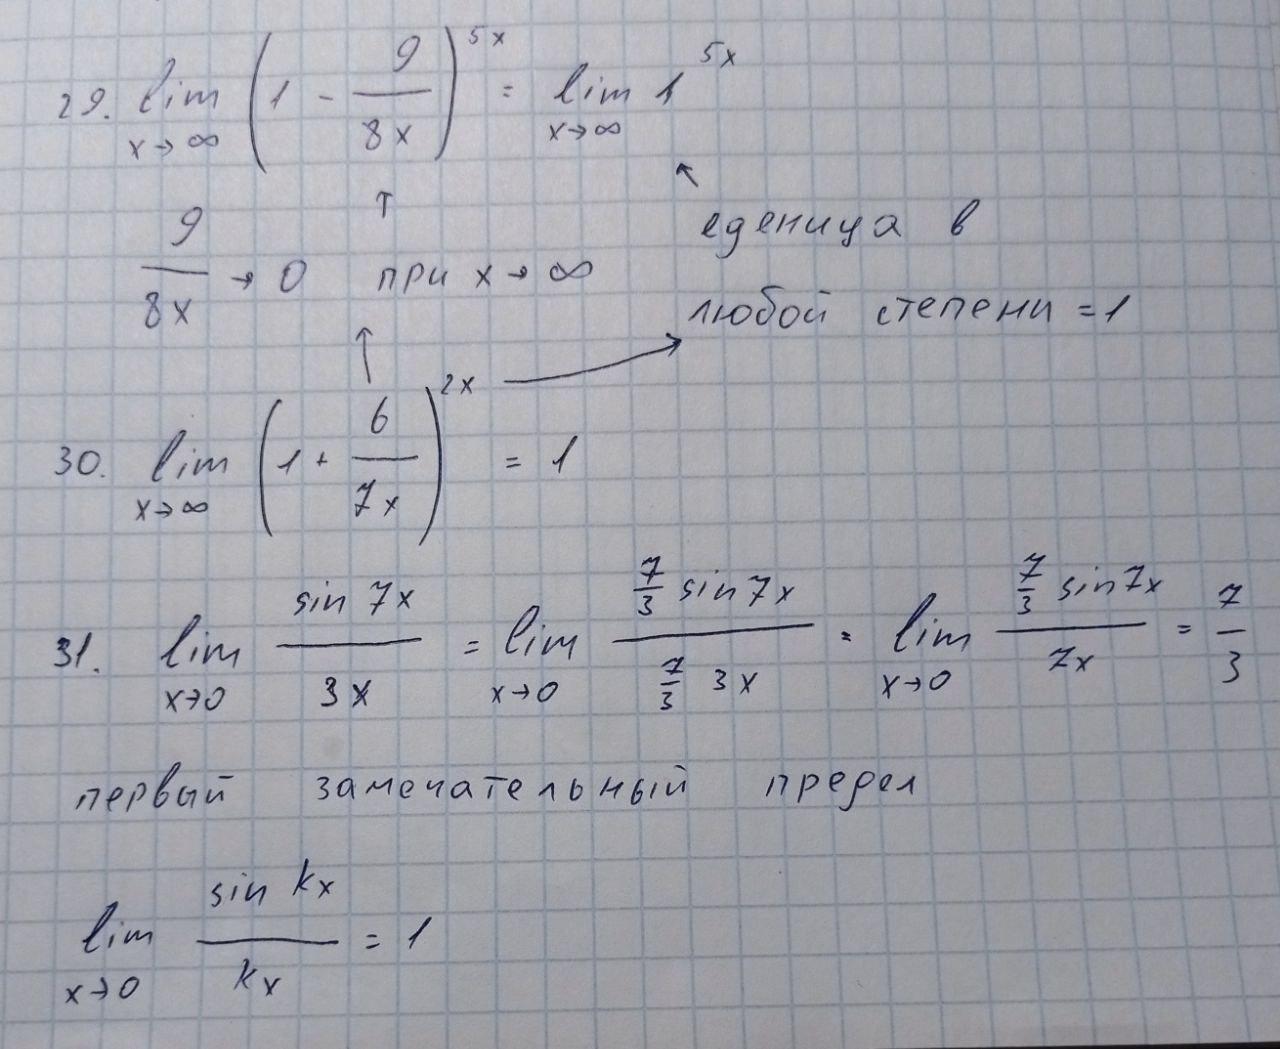 29. lim x→∞ (1 - 9/8x)^5x = lim x→∞ 1^5x
↑ ↖
9/8x → 0 при x→∞
еденица в
любой степени = 1
30. lim x→∞ (1 + 6/7x)^2x = 1
31. lim x→0 sin 7x / 3x = lim x→0 7/3 sin 7x / 7/3 3x = lim x→0 7/3 sin 7x / 7x = 7/3
первый замечательный предел
lim x→0 sin kx / kx = 1